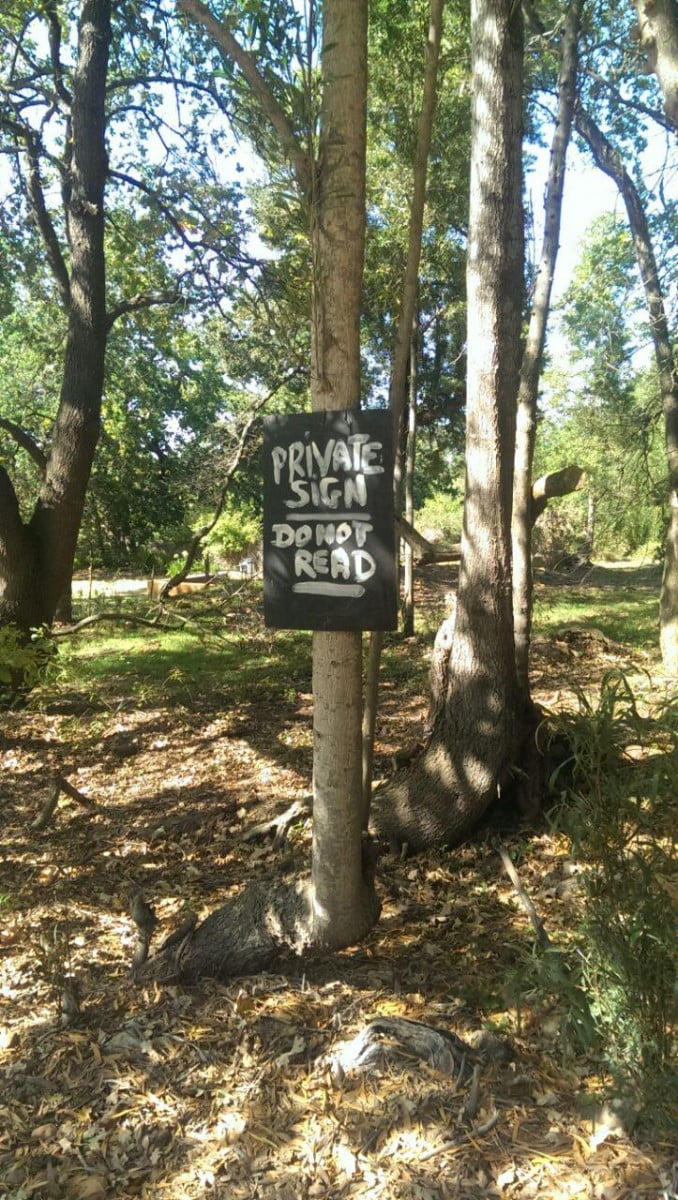 PRIVATE
SIGN
DO NOT
READ